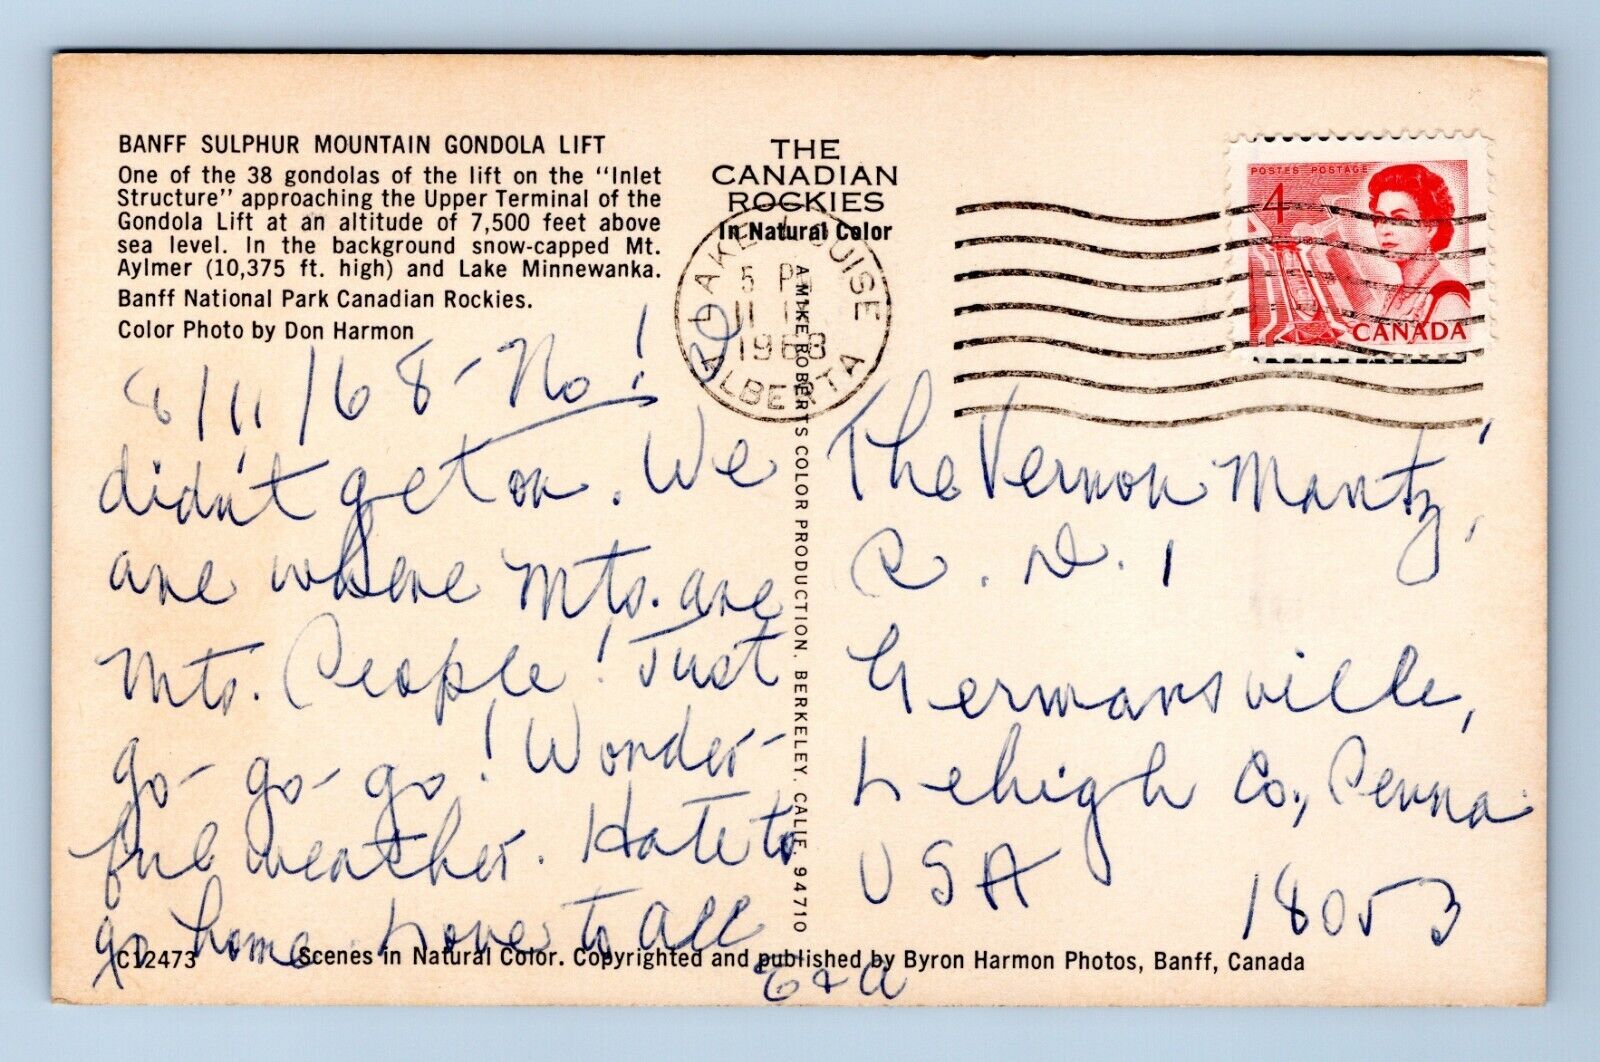 BANFF SULPHUR MOUNTAIN GONDOLA LIFT
One of the 38 gondolas of the lift on the "Inlet
Structure" approaching the Upper Terminal of the
Gondola Lift at an altitude of 7,500 feet above
sea level. In the background snow-capped Mt.
Aylmer (10,375 ft. high) and Lake Minnewanka.
Banff National Park Canadian Rockies.
Color Photo by Don Harmon
THE
CANADIAN
ROCKIES
In Natural Color
LAKE LOUISE
5 PM
1968
ALBERTA
POSTES POSTAGE
4
CANADA
8/11/68 - No!
didn't get on. We
are where Mts. are
Mts. People! Just
go - go - go! Wonder-
ful weather. Hate to
go home. Love to all
E & A
A MIKE ROBERTS COLOR PRODUCTION, BERKELEY, CALIF. 94710
The Vernon Mantz'
R. D. 1
Germansville,
Lehigh Co., Penna.
USA 18053
C12473
Scenes in Natural Color. Copyrighted and published by Byron Harmon Photos, Banff, Canada